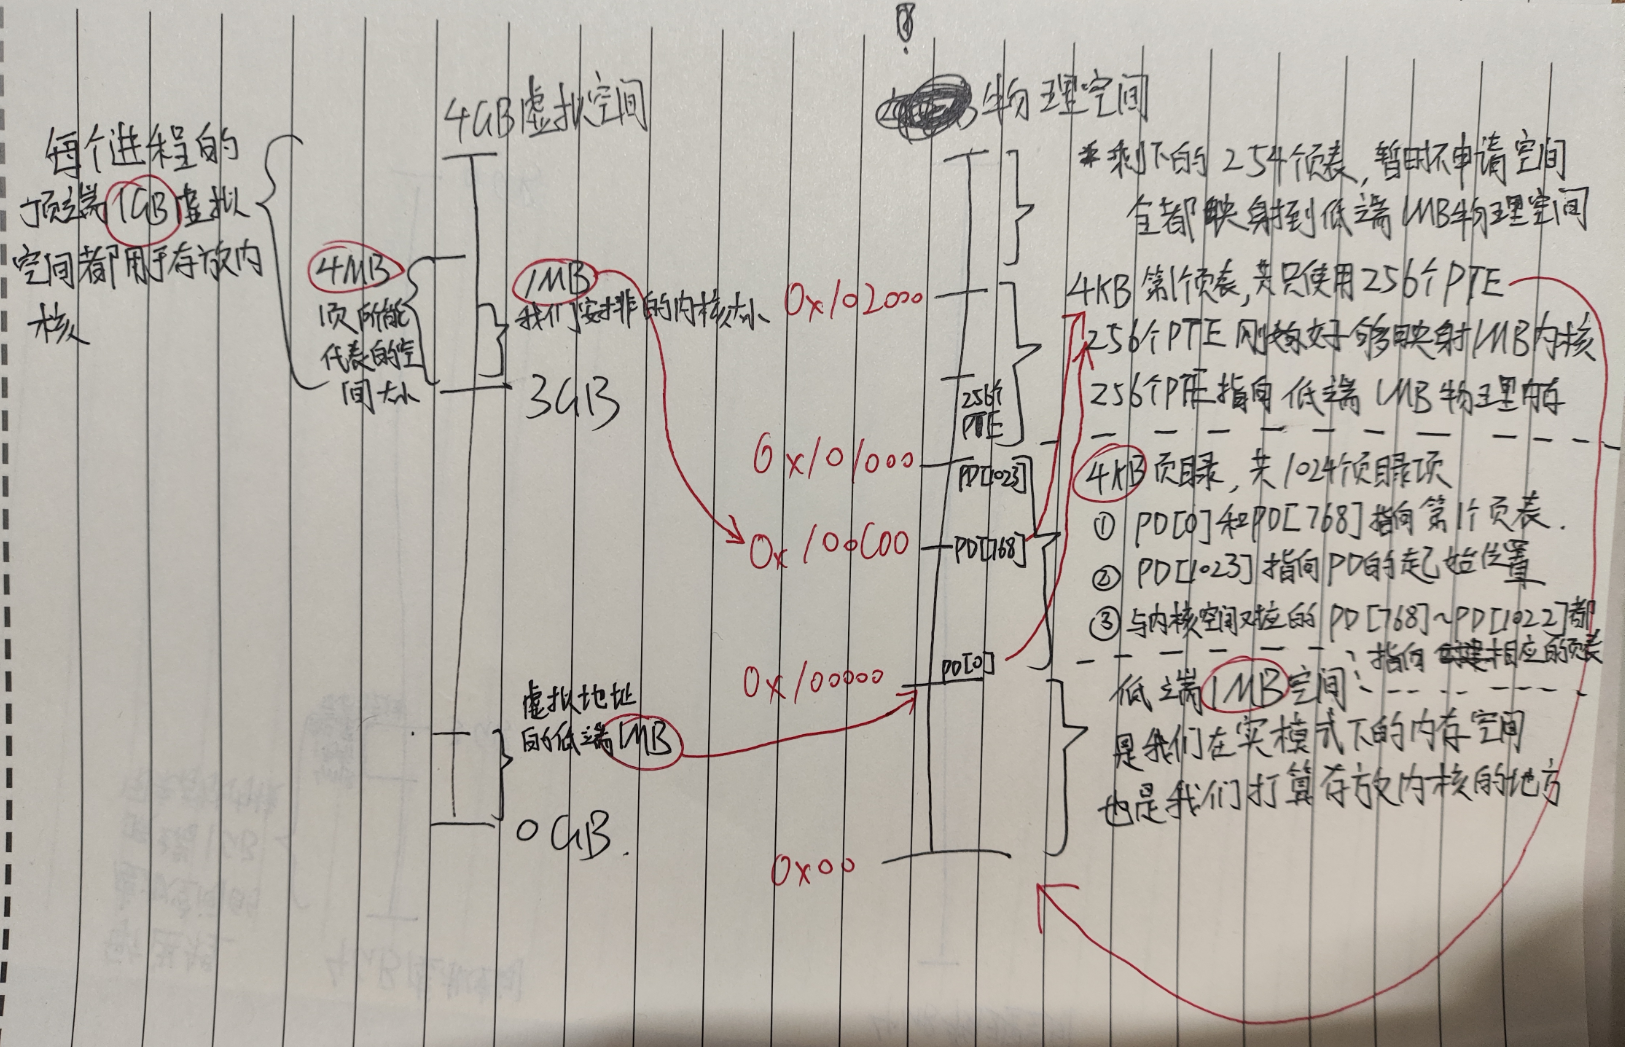 4GB虚拟空间
每个进程的
顶端1GB虚拟
空间都用于存放内
核
4MB
1页所能
代表的空
间大小
1MB
我们安排的内核大小
3GB
虚拟地址
的低端1MB
0GB.
物理空间
0x102000
256个
PTE
0x101000
PD[1023]
0x100C00
PD[768]
0x100000
PD[0]
0x00
*剩下的254个页表,暂时不申请空间
全都映射到低端1MB物理空间
4KB 第1个页表,共只使用256个PTE
256个PTE 刚好够映射1MB内核
256个PTE指向 低端 1MB 物理内存
4KB页目录,共1024个页目录项
① PD[0]和PD[768]指向第1个页表.
② PD[1023]指向PD的起始位置
③ 与内核空间对应的 PD[768]~PD[1022]都
指向 相应的页表
低端1MB空间:
是我们在实模式下的内存空间
也是我们打算存放内核的地方